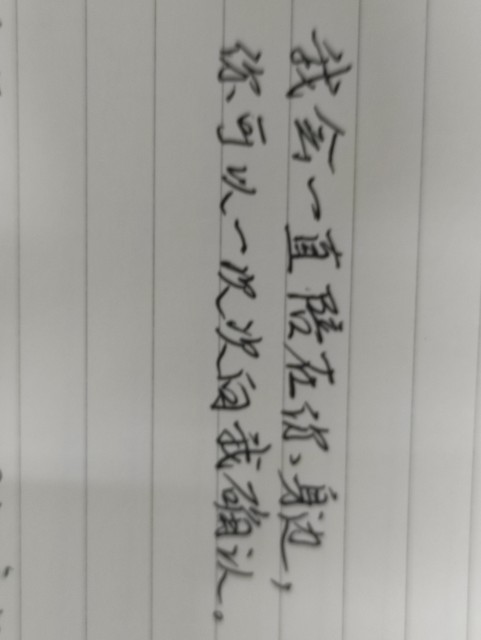 我会一直陪在你身边，
你可以一次次向我确认。